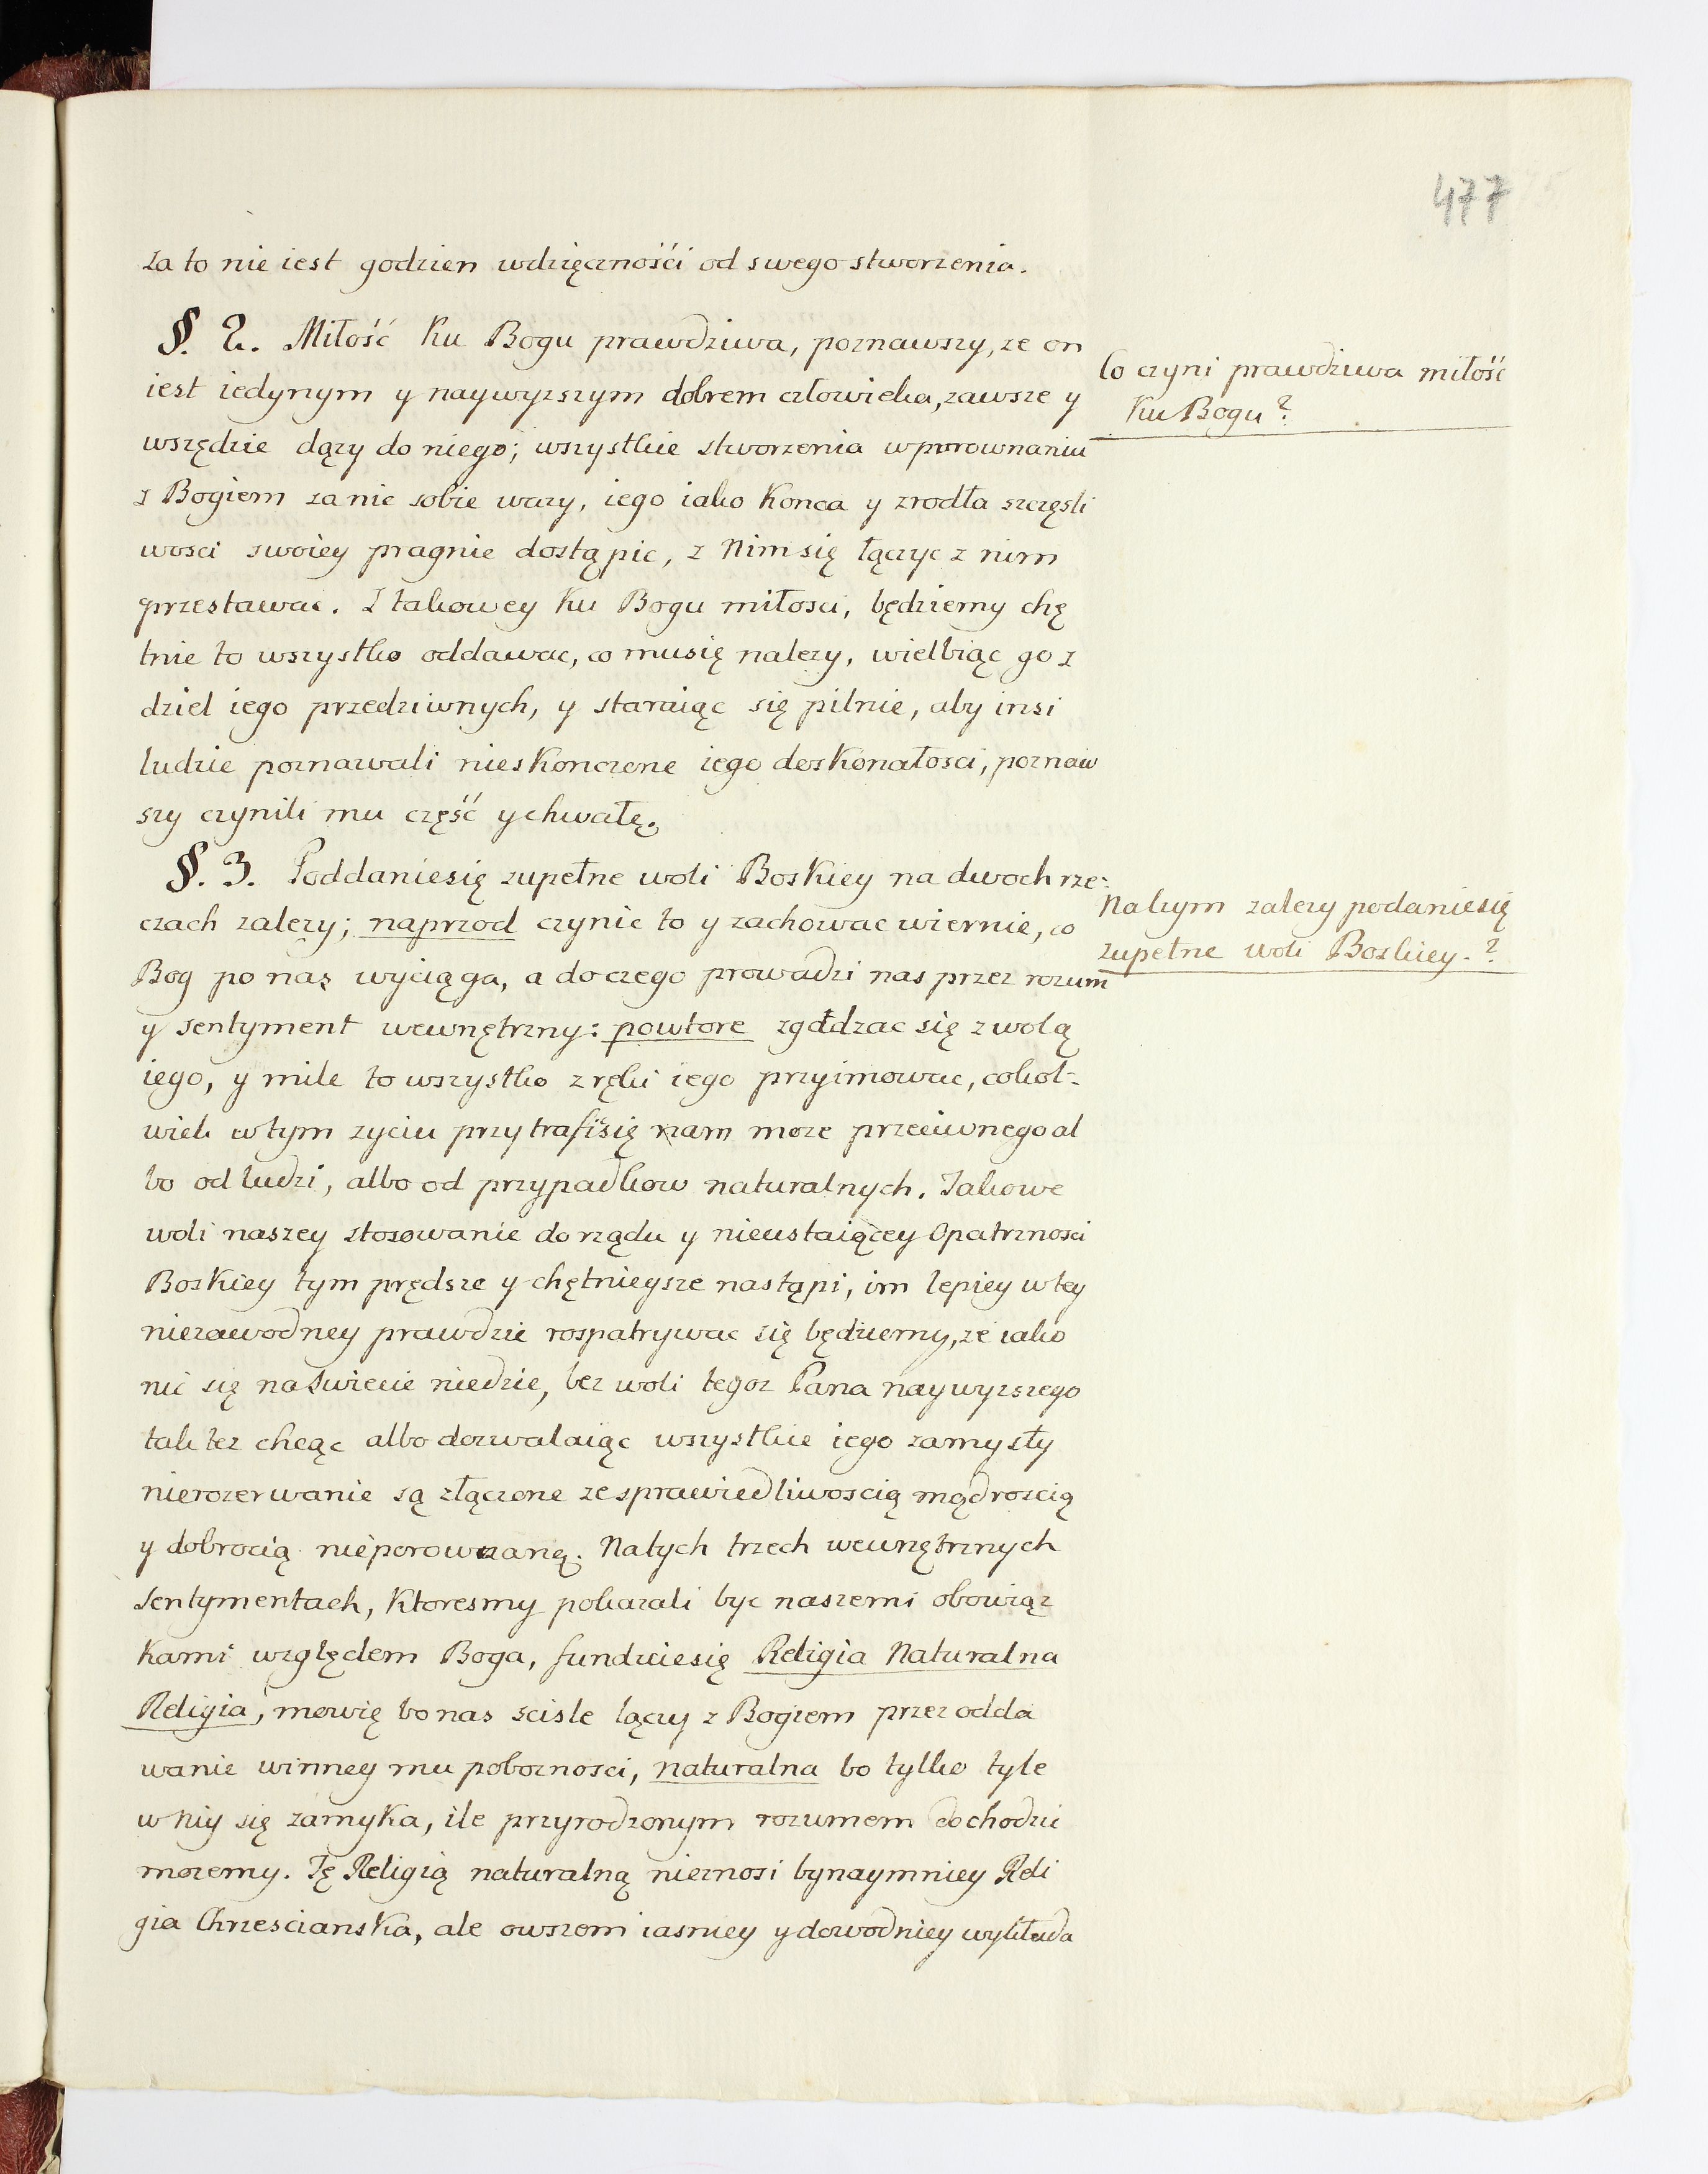 477
za to nie iest godzien wdzięcznośći od swego stworzenia.
§. 2. Miłość ku Bogu prawdziwa, poznawszy, ze on
iest iedynym y naywyzszym dobrem człowieka, zawsze y
wszędzie dązy do niego; wszystkie stworzenia w porownaniu
z Bogiem za nic sobie wazy, iego iako konca y zrodła szczęsli
wosci swoiey pragnie dostąpic, z Nim się łączyc z nim
przestawac. Z takowey ku Bogu miłosci, będziemy chę
tnie to wszystko oddawac, co mu się nalezy, wielbiąc go z
dziel iego przedziwnych, y staraiąc się pilnie, aby insi
ludzie poznawali nieskonczone iego doskonałosci, poznaw
szy czynili mu część y chwałę.
Co czyni prawdziwa miłość
ku Bogu?
§. 3. Poddanie się zupełne woli Boskiey na dwoch rze-
czach zalezy; naprzod czynic to y zachowac wiernie, co
Bog po nas wyciąga, a do czego prowadzi nas przez rozum
y sentyment wewnętrzny: powtore zgadzac się z wolą
iego, y mile to wszystko z ręki iego przyimowac, cokol-
wiek w tym zyciu przytrafić się nam moze przeciwnego al
bo od ludzi, albo od przypadkow naturalnych. Takowe
woli naszey stosowanie do rządu y nieustaiącey Opatrznosci
Boskiey tym prędsze y chętnieysze nastąpi, im lepiey w tey
niezawodney prawdzie rospatrywac się będziemy, ze iako
nic się na swiecie niedzie, bez woli tegoz Pana naywyzszego
tak tez chcąc albo dozwalaiąc wszystkie iego zamysły
nierozerwanie są złączone ze sprawiedliwoscią mądroscią
y dobrocią nieporownaną. Na tych trzech wewnętrznych
sentymentach, ktoresmy pokazali byc naszemi obowiąz
kami względem Boga, funduie się Religia Naturalna
Religia, mowię bo nas scisle łączy z Bogiem przez odda
wanie winney mu poboznosci, naturalna bo tylko tyle
w niy się zamyka, ile przyrodzonym rozumem dochodzic
mozemy. Tę Religią naturalną nieznosi bynaymniey Reli
gia Chrzescianska, ale owszem iasniey y dowodniey wykłada
Na czym zalezy podanie się
zupełne woli Boskiey.?